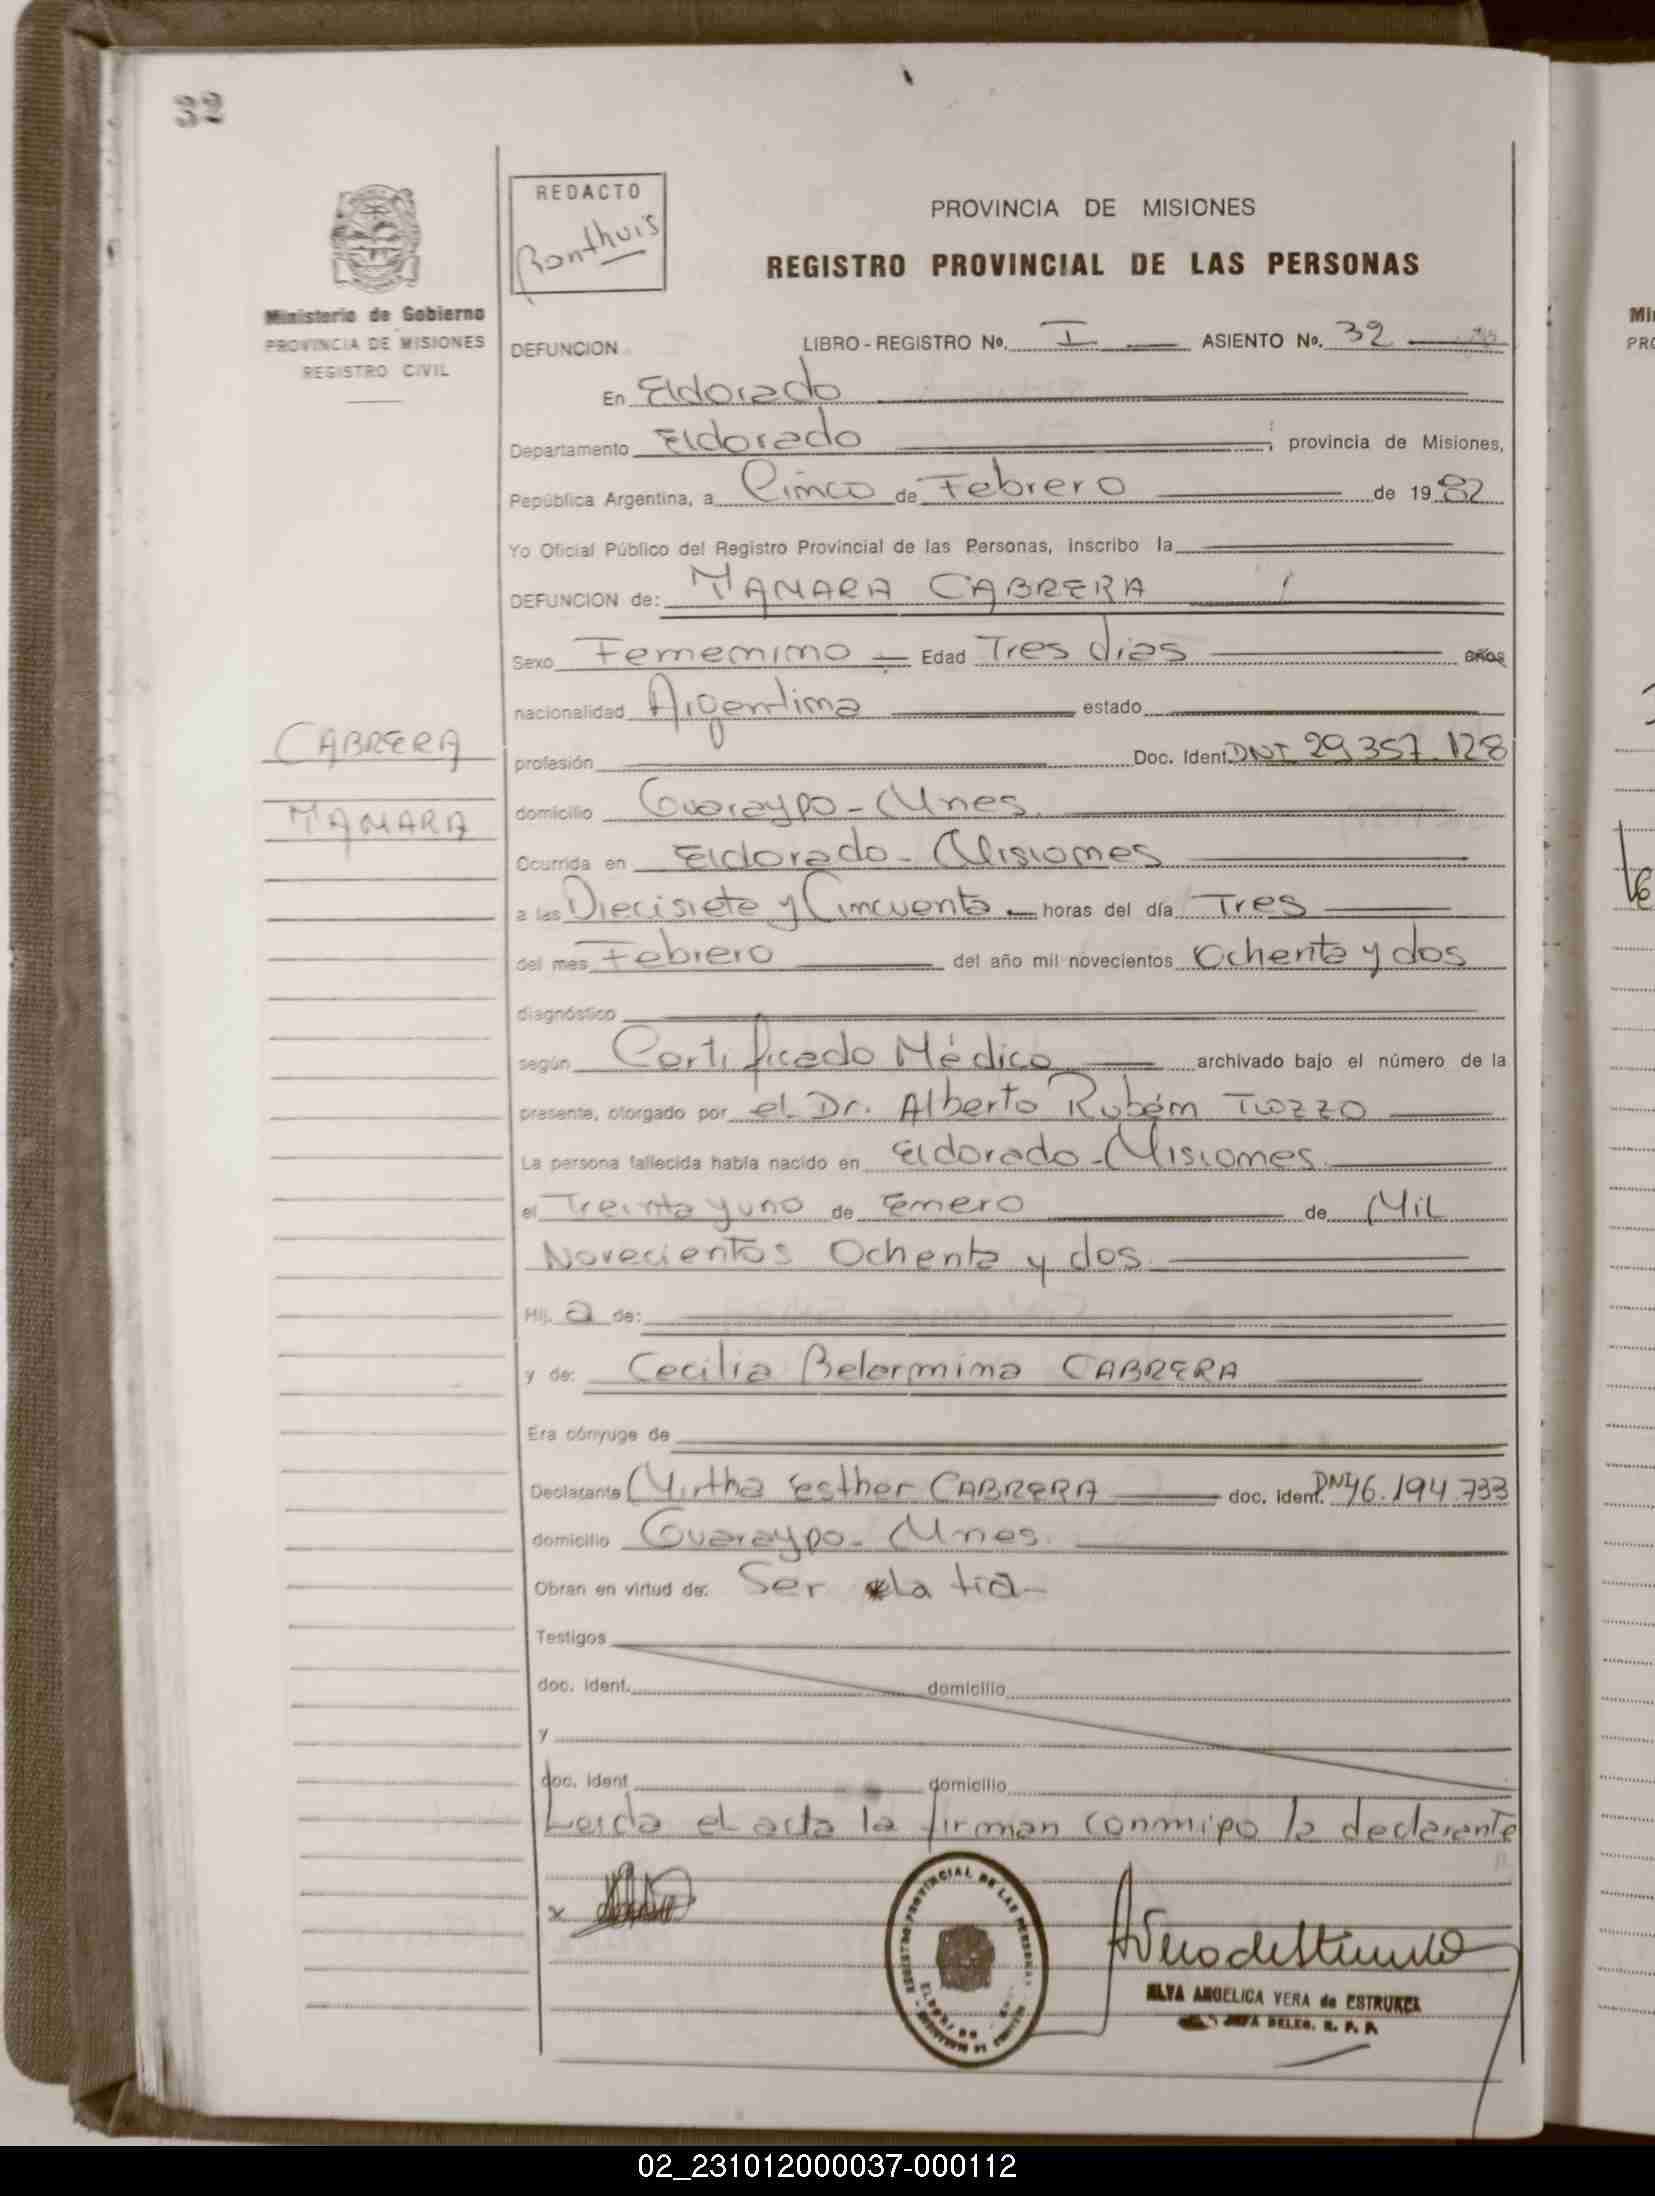 32
REDACTO
Bonthuis
PROVINCIA DE MISIONES
REGISTRO PROVINCIAL DE LAS PERSONAS
Ministerio de Gobierno
PROVINCIA DE MISIONES
REGISTRO CIVIL
DEFUNCION LIBRO - REGISTRO No. I ASIENTO No. 32
En Eldorado
Departamento Eldorado, provincia de Misiones,
República Argentina, a Cinco de Febrero de 1982
Yo Oficial Público del Registro Provincial de las Personas, inscribo la
DEFUNCION de: TAMARA CABRERA
Sexo Femenino Edad Tres dias años
nacionalidad Argentina estado
CABRERA
profesión Doc. Ident. DNI 29.357.128
TAMARA
domicilio Guaraypo - Mnes.
Ocurrida en Eldorado - Misiones
a las Diecisiete y Cincuenta horas del día Tres
del mes Febrero del año mil novecientos Ochenta y dos
diagnóstico
según Certificado Médico archivado bajo el número de la
presente, otorgado por el Dr. Alberto Rubén
La persona fallecida había nacido en Eldorado - Misiones
el Treinta y uno de Enero de Mil
Novecientos Ochenta y dos.
Hij a de:
y de: Cecilia Belarmina CABRERA
Era cónyuge de
Declarante Mirtha Esther CABRERA doc. ident. DNI
domicilio Guaraypo - Mnes.
Obran en virtud de: Ser la tia
Testigos
doc. ident. domicilio
y
doc. ident domicilio
Leida el acta la firman conmigo la declarante
x
REGISTRO PROVINCIAL DE LAS PERSONAS
ELVA ANGELICA VERA de ESTRUKEL
JEFA DELEG. R. P. P.
02_231012000037-000112